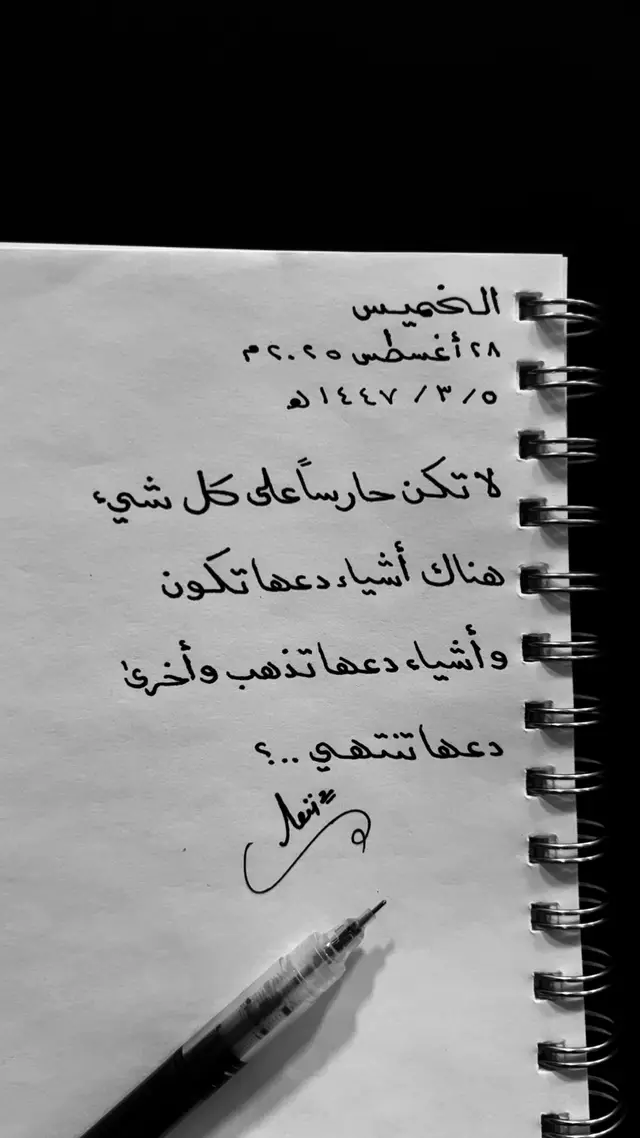 الخميس
٢٨ أغسطس ٢٠٢٥ م
٥ / ٣ / ١٤٤٧ هـ
لا تكن حارساً على كل شيء
هناك أشياء دعها تكون
وأشياء دعها تذهب وأخرىٰ
دعها تنتهي ..؟